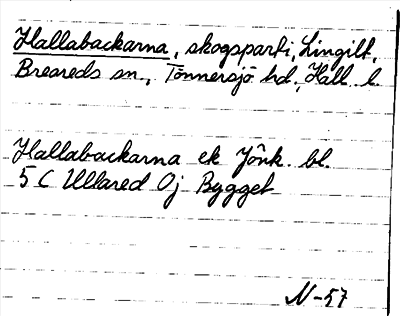 Hallabackarna, skogsparti, Lingilt,
Breareds sn., Tönnersjö hd., Hall. l.
Hallabackarna ek Jönk. bl.
5 C Ullared Oj Bygget
N-57